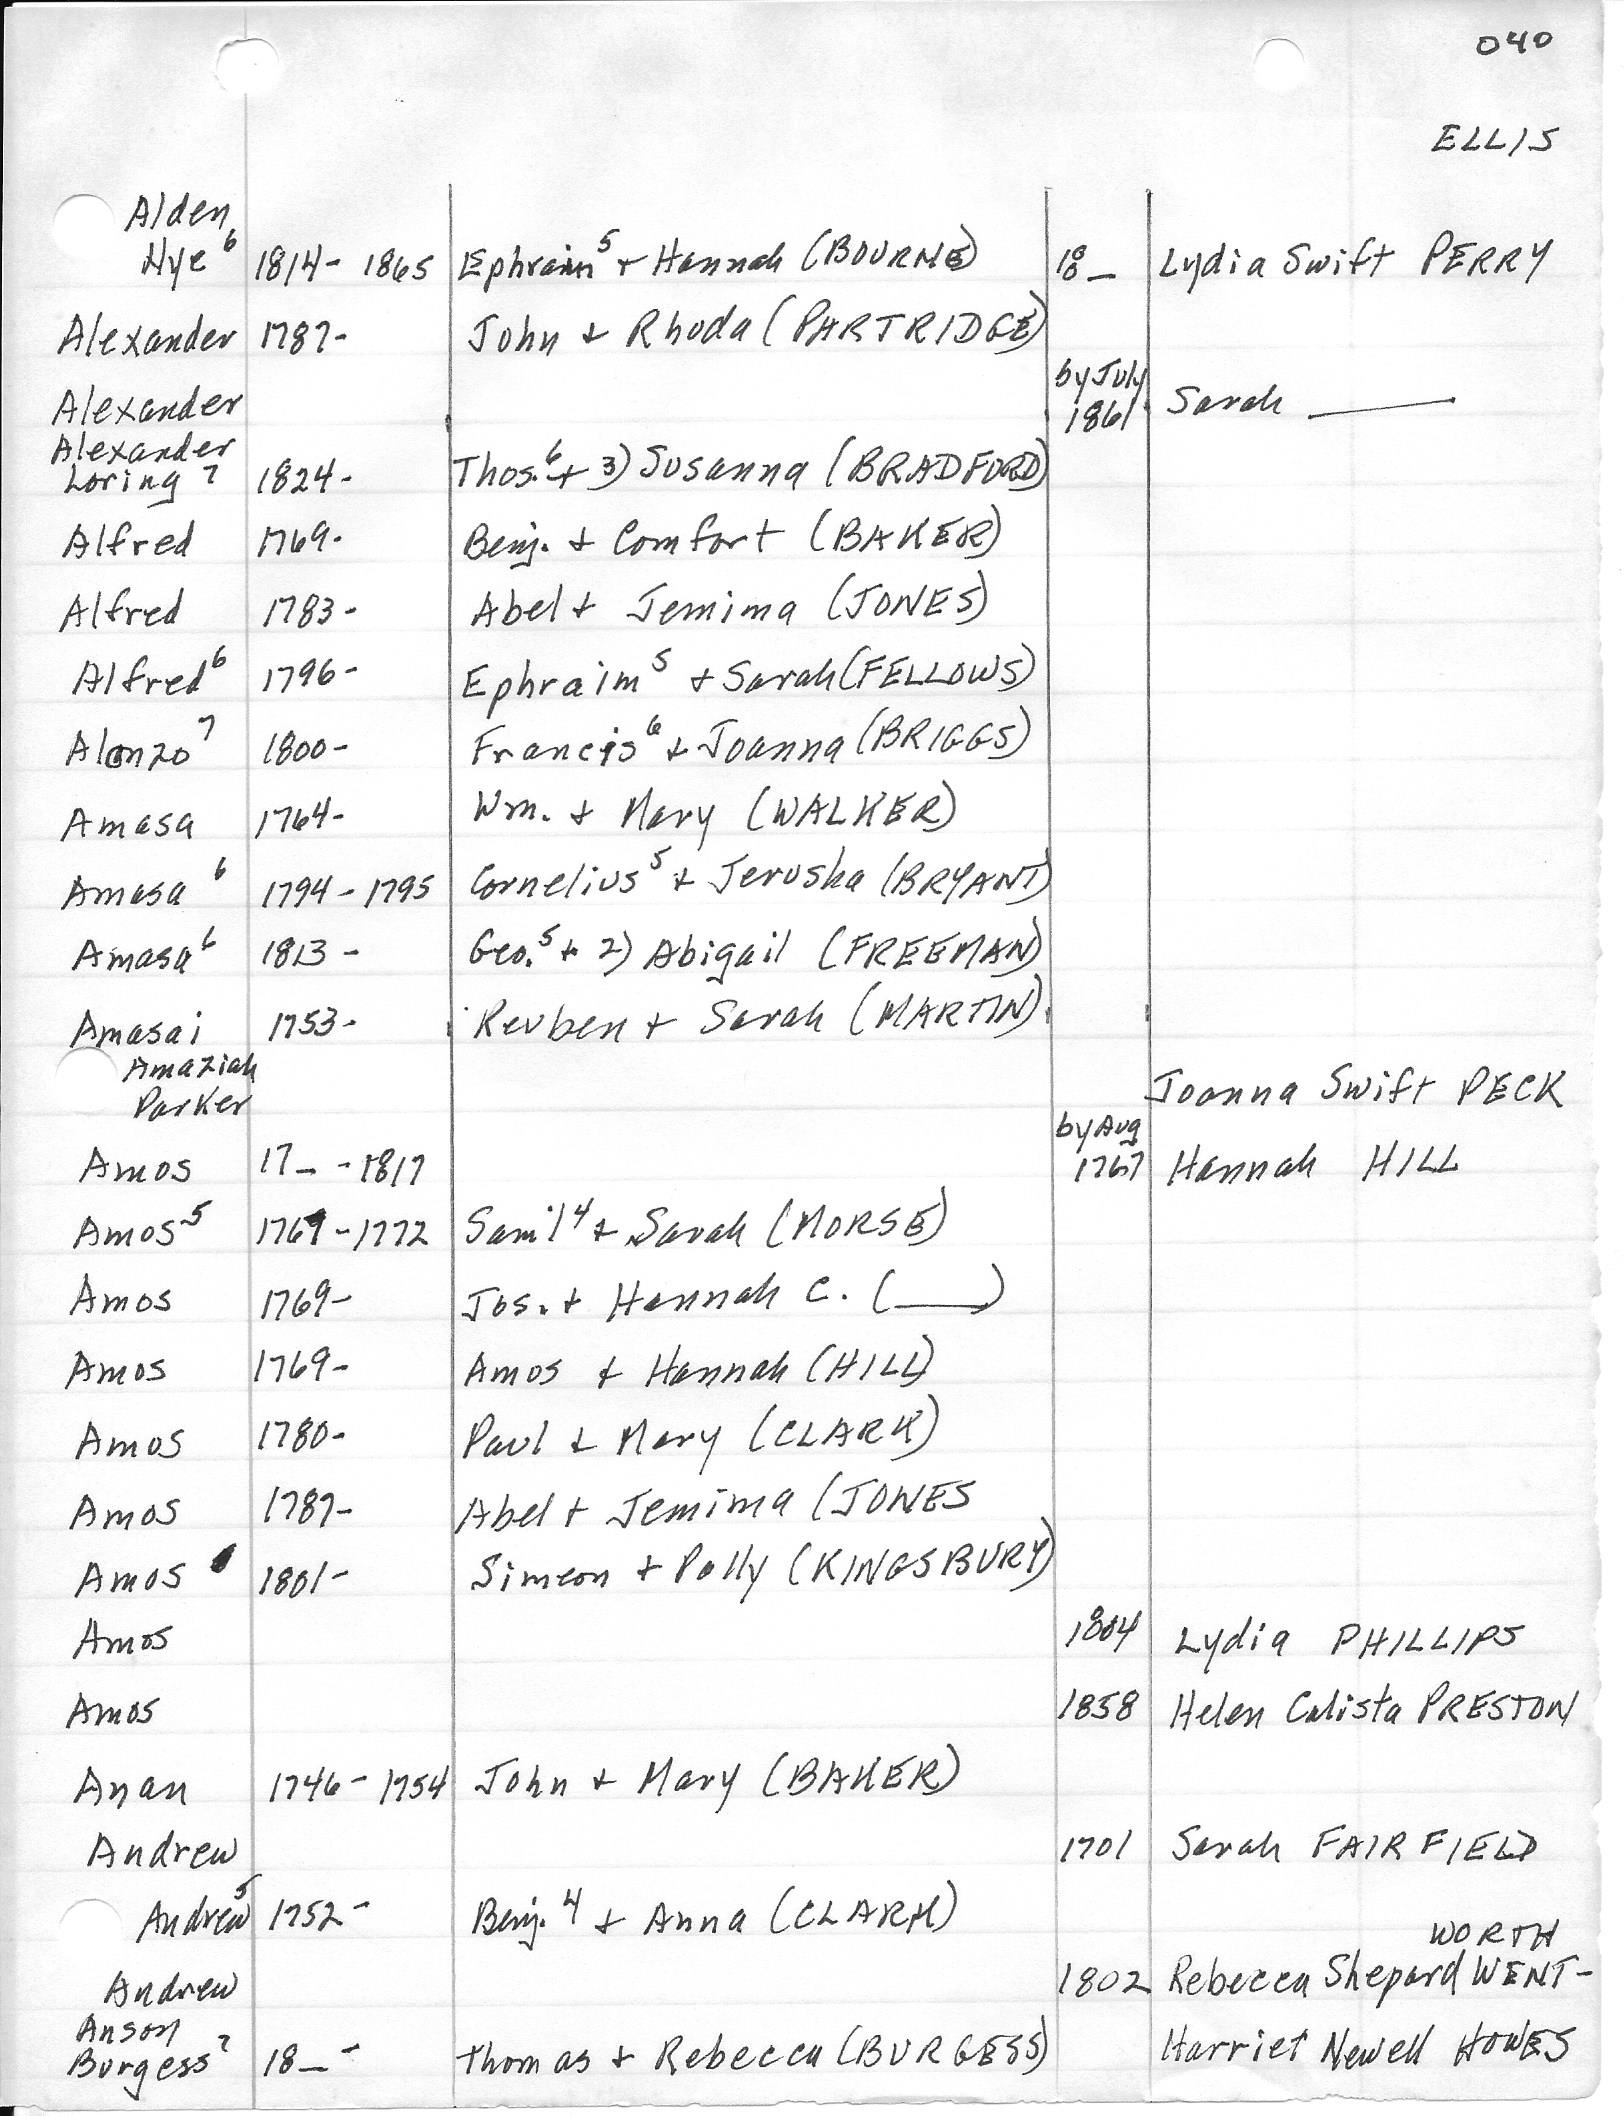 040
ELLIS
Alden
Nye⁶ 1814- 1865 Ephraim⁵ + Hannah (BOURNE) 18_ Lydia Swift PERRY
Alexander 1787- John + Rhoda (PARTRIDGE)
by July
Alexander 1861 Sarah ____
Alexander
Loring⁷ 1824- Thos.⁶ + 3) Susanna (BRADFORD)
Alfred 1769- Benj. + Comfort (BAKER)
Alfred 1783- Abel + Jemima (JONES)
Alfred⁶ 1796- Ephraim⁵ + Sarah (FELLOWS)
Alonzo⁷ 1800- Francis⁶ + Joanna (BRIGGS)
Amasa 1764- Wm. + Mary (WALKER)
Amasa⁶ 1794-1795 Cornelius⁵ + Jerusha (BRYANT)
Amasa⁶ 1813- Geo.⁵ + 2) Abigail (FREEMAN)
Amasai 1753- Reuben + Sarah (MARTIN)
Amaziah
Parker Joanna Swift PECK
by Aug
Amos 17_ -1817 1767 Hannah HILL
Amos⁵ -1772 Sam'l⁴ + Sarah (MORSE)
Amos 1769- Jos. + Hannah C. (____)
Amos 1769- Amos + Hannah (HILL)
Amos 1780- Paul + Mary (CLARK)
Amos 1787- Abel + Jemima (JONES
Amos 1801- Simeon + Polly (KINGSBURY)
Amos 1804 Lydia PHILLIPS
Amos 1858 Helen Calista PRESTON
Anan 1746-1754 John + Mary (BAKER)
Andrew 1701 Sarah FAIRFIELD
Andrew⁵ 1752- Benj.⁴ + Anna (CLARK)
WORTH
Andrew 1802 Rebecca Shepard WENT-
Anson
Burgess⁷ 18_- Thomas + Rebecca (BURGESS) Harriet Newell HOWES